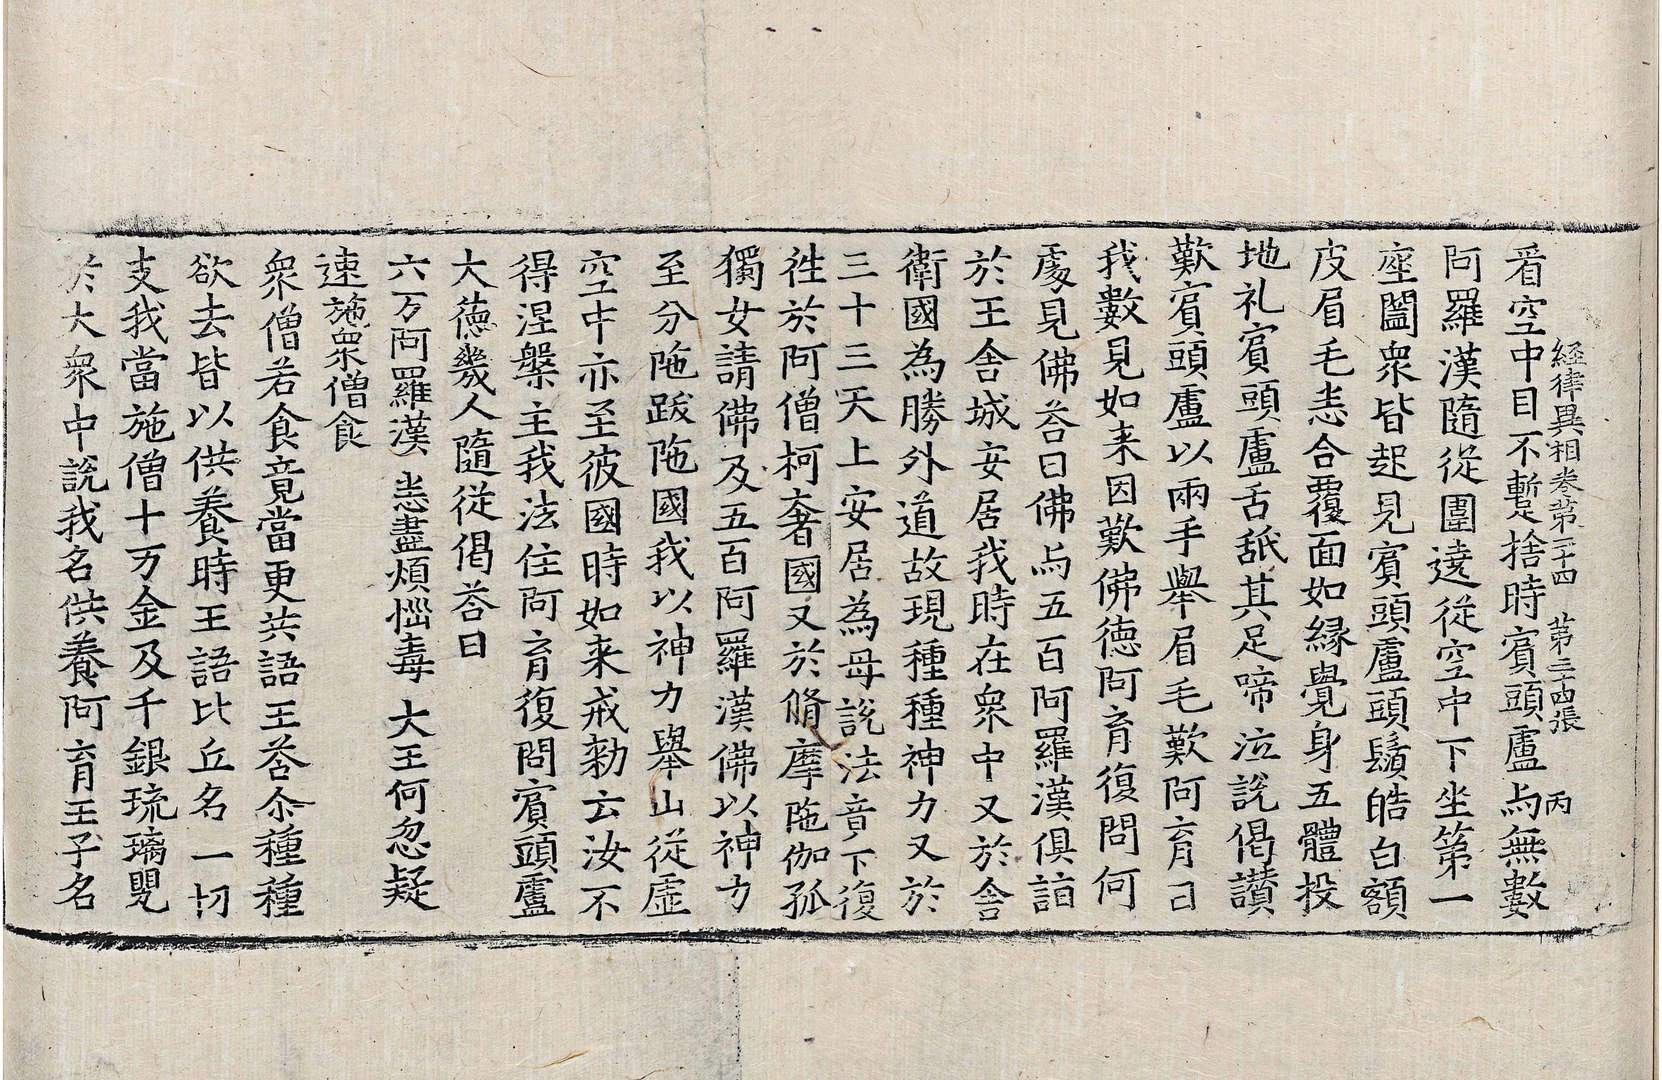 経律異相卷第二十四　第三十四張　丙
看空中目不暫捨時賓頭盧与無數
阿羅漢隨從圍遶從空中下坐第一
座闔衆皆起見賓頭盧頭鬚皓白額
皮眉毛恚合覆面如縁覺身五體投
地礼賓頭盧舌舐其足啼泣說偈讃
歎賓頭盧以兩手舉眉毛歎阿育曰
我數見如来因歎佛徳阿育復問何
處見佛荅曰佛与五百阿羅漢俱詣
於王舍城安居我時在衆中又於舍
衛國為勝外道故現種種神力又於
三十三天上安居為母說法音下復
徃於阿僧柯奢國又於脩摩陁伽孤
獨女請佛及五百阿羅漢佛以神力
至分陁跋陁國我以神力舉山從虚
空中亦至彼國時如来戒勑云汝不
得涅槃主我法住阿育復問賓頭盧
大徳幾人隨從偈荅曰
六万阿羅漢　恚盡煩惱毒　大王何忽疑
速施衆僧食
衆僧若食竟當更共語王荅尒種種
欲去皆以供養時王語比丘名一切
支我當施僧十万金及千銀琉璃甖
於大衆中說我名供養阿育王子名